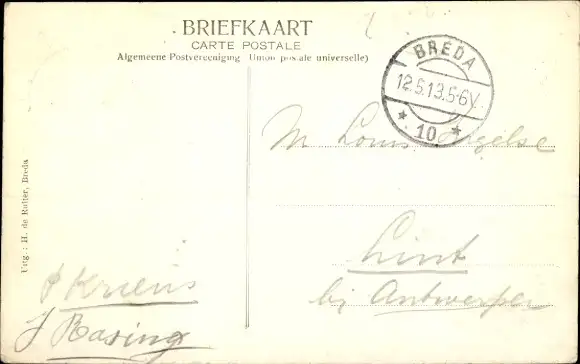 BRIEFKAART
CARTE POSTALE
Algemeene Postvereeniging (Union postale universelle)
BREDA
12.5.13.5-6V
* 10 *
M Louis
Lint
bij Antwerpen
Uitg.: H. de Ruiter, Breda
P Kriens
J Rasing